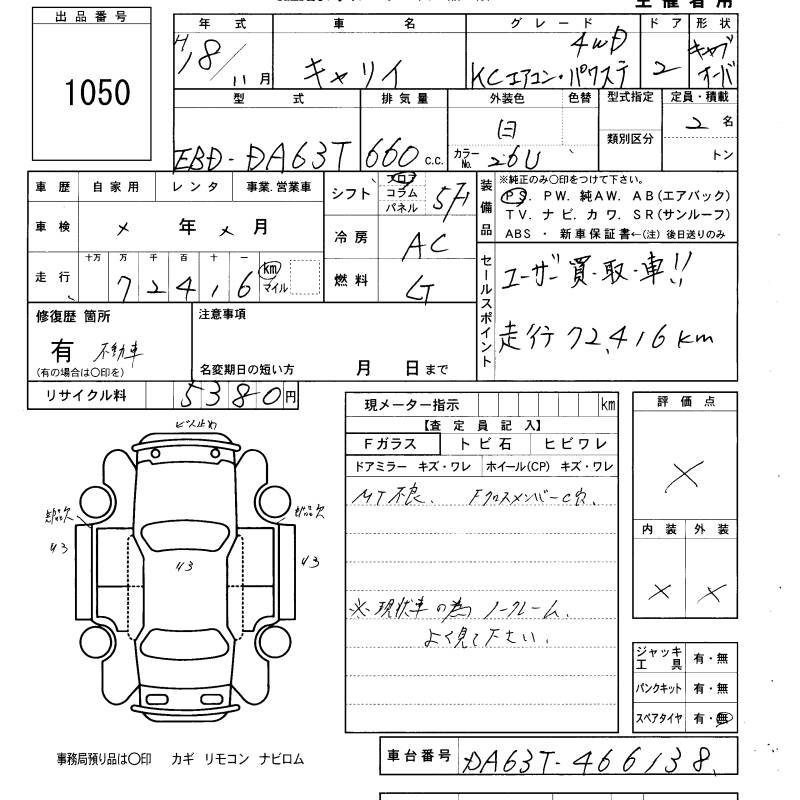 主催者用
出品番号
1050
年式 車名 グレード ドア 形状
H18/11月 キャリイ 4WD KCエアコン・パワステ 2 キャブオーバ
型式 排気量 外装色 色替 型式指定 定員・積載
EBD-DA63T 660 c.c. 白 カラーNo. 26U 類別区分 2名 トン
車歴 自家用 レンタ 事業.営業車
シフト フロア コラム パネル 5F1
装備品 ※純正のみ〇印をつけて下さい。
PS. PW. 純AW. AB(エアバック)
TV. ナビ. カワ. SR(サンルーフ)
ABS ・ 新車保証書←(注) 後日送りのみ
車検 × 年 × 月
冷房 AC
走行 十万 万 千 百 十 一
72416 km マイル
燃料 G
セールスポイント
ユーザー買・取・車!!
走行 72,416km
修復歴 箇所
有 不動車
(有の場合は〇印を)
注意事項
名変期日の短い方 月 日まで
リサイクル料 5380円
現メーター指示 km
【査定員記入】
Fガラス トビ石 ヒビワレ
ドアミラー キズ・ワレ ホイール(CP) キズ・ワレ
MT不良、 Fクロスメンバーc有、
※現状車の為ノークレーム、
よく見て下さい。
評価点
×
内装 外装
× ×
ジャッキ工具 有・無
パンクキット 有・無
スペアタイヤ 有・無
車台番号 DA63T-466138
事務局預り品は〇印 カギ リモコン ナビロム